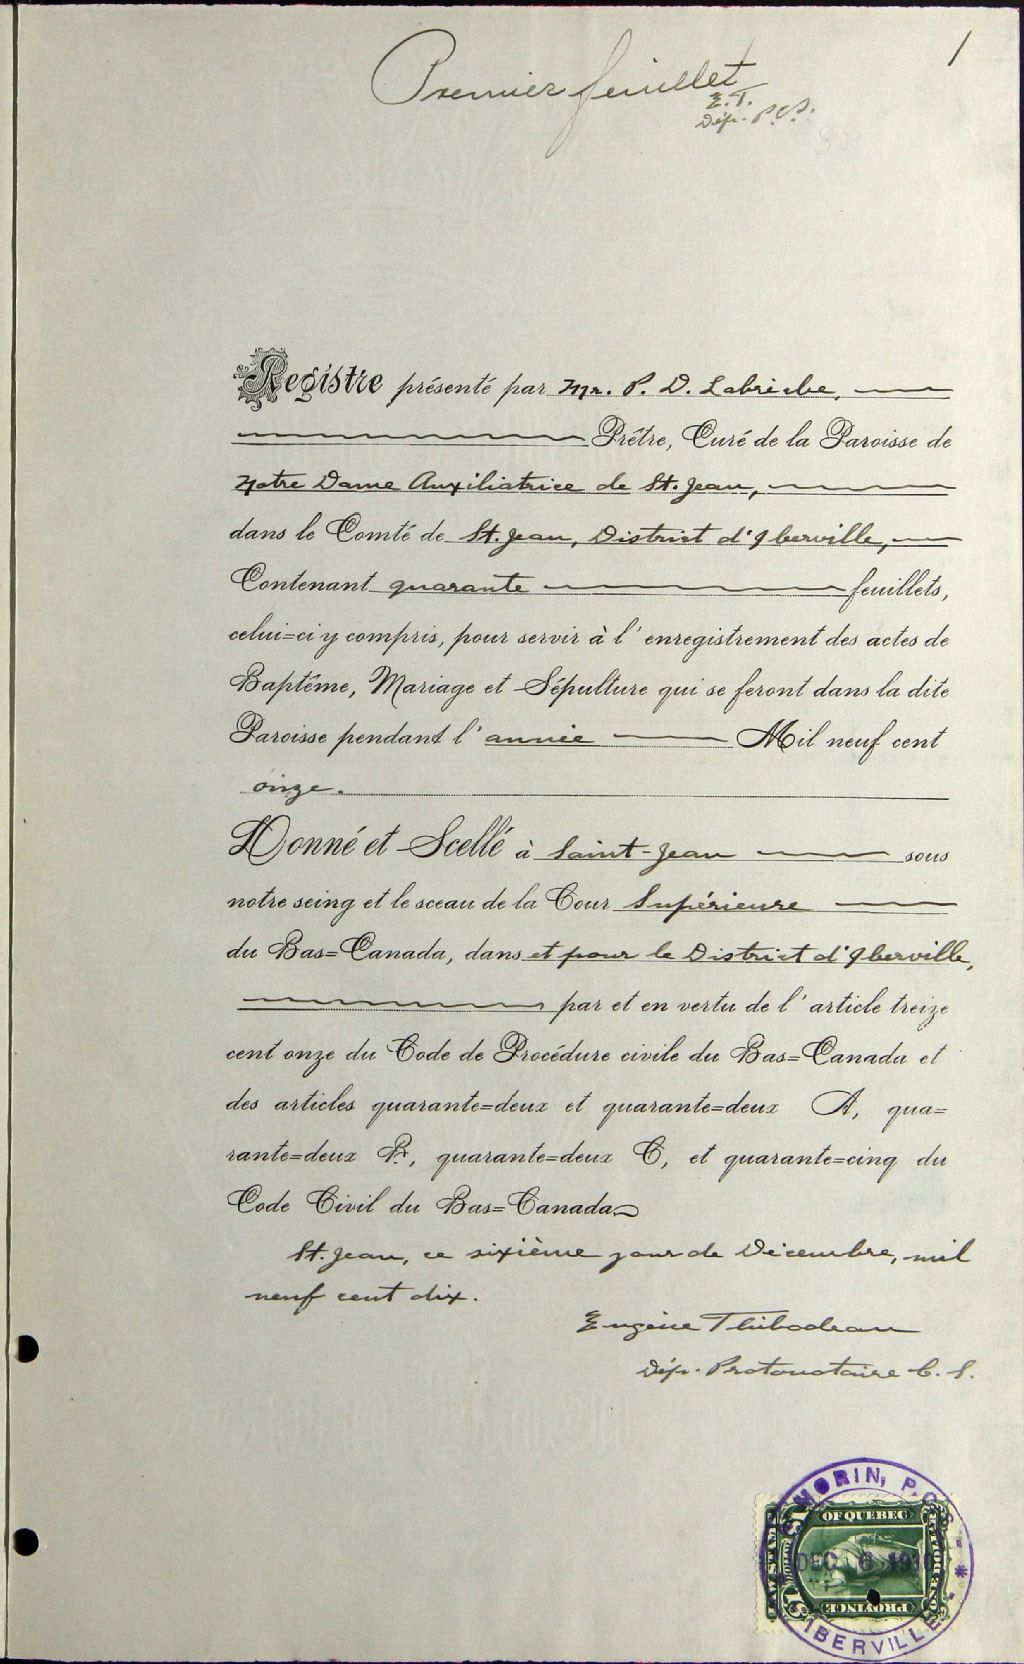 1
Premier feuillet
E. T.
Dép. P.C.S.
Registre présenté par Mr. P. D. Labrèche,
Prêtre, Curé de la Paroisse de
Notre Dame Auxiliatrice de St. Jean,
dans le Comté de St. Jean, District d'Iberville,
Contenant quarante feuillets,
celui=ci y compris, pour servir à l'enregistrement des actes de
Baptême, Mariage et Sépulture qui se feront dans la dite
Paroisse pendant l'année Mil neuf cent
onze.
Donné et Scellé à Saint-Jean sous
notre seing et le sceau de la Cour Supérieure
du Bas=Canada, dans et pour le District d'Iberville,
par et en vertu de l'article treize
cent onze du Code de Procédure civile du Bas=Canada et
des articles quarante=deux et quarante=deux A, qua=
rante=deux B, quarante=deux C, et quarante=cinq du
Code Civil du Bas=Canada
St. Jean, ce sixième jour de Décembre, mil
neuf cent dix.
Eugène Thibodeau
Dép. Protonotaire C. S.
MORIN, P.C.S.
OF QUEBEC
DEC 6 1910
PROVINCE
IBERVILLE